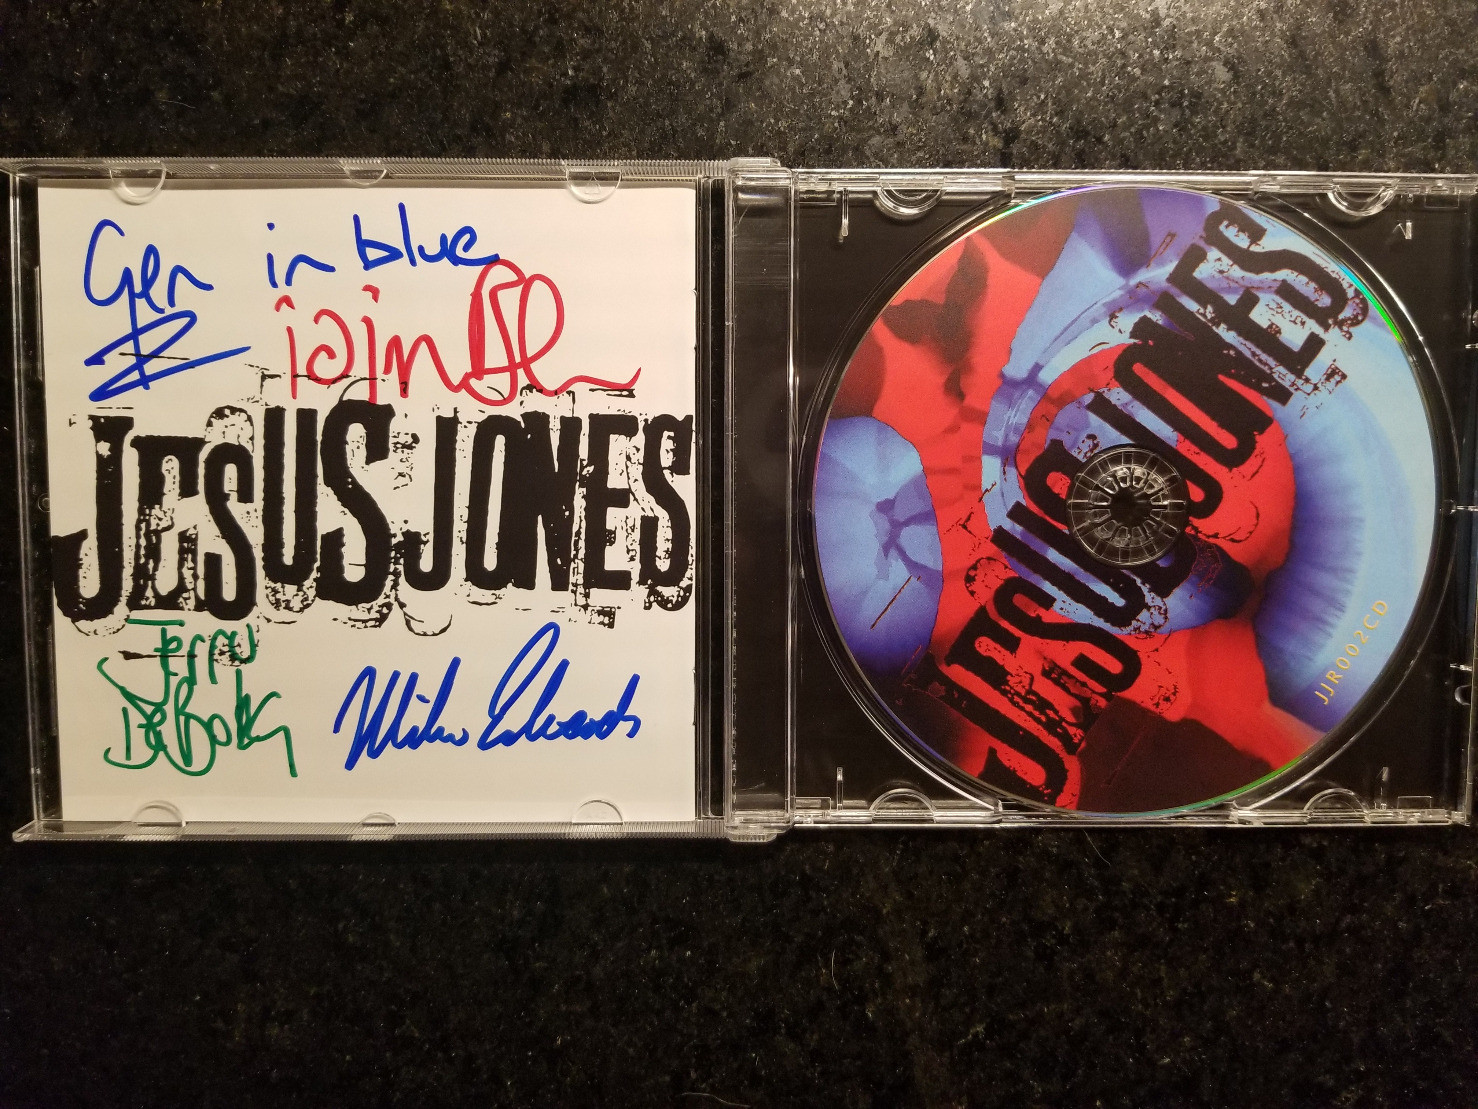 Gen in blue
iain
JESUS JONES
Jerry
De Borg
Mike Edwards
JESUS JONES
JJR002CD